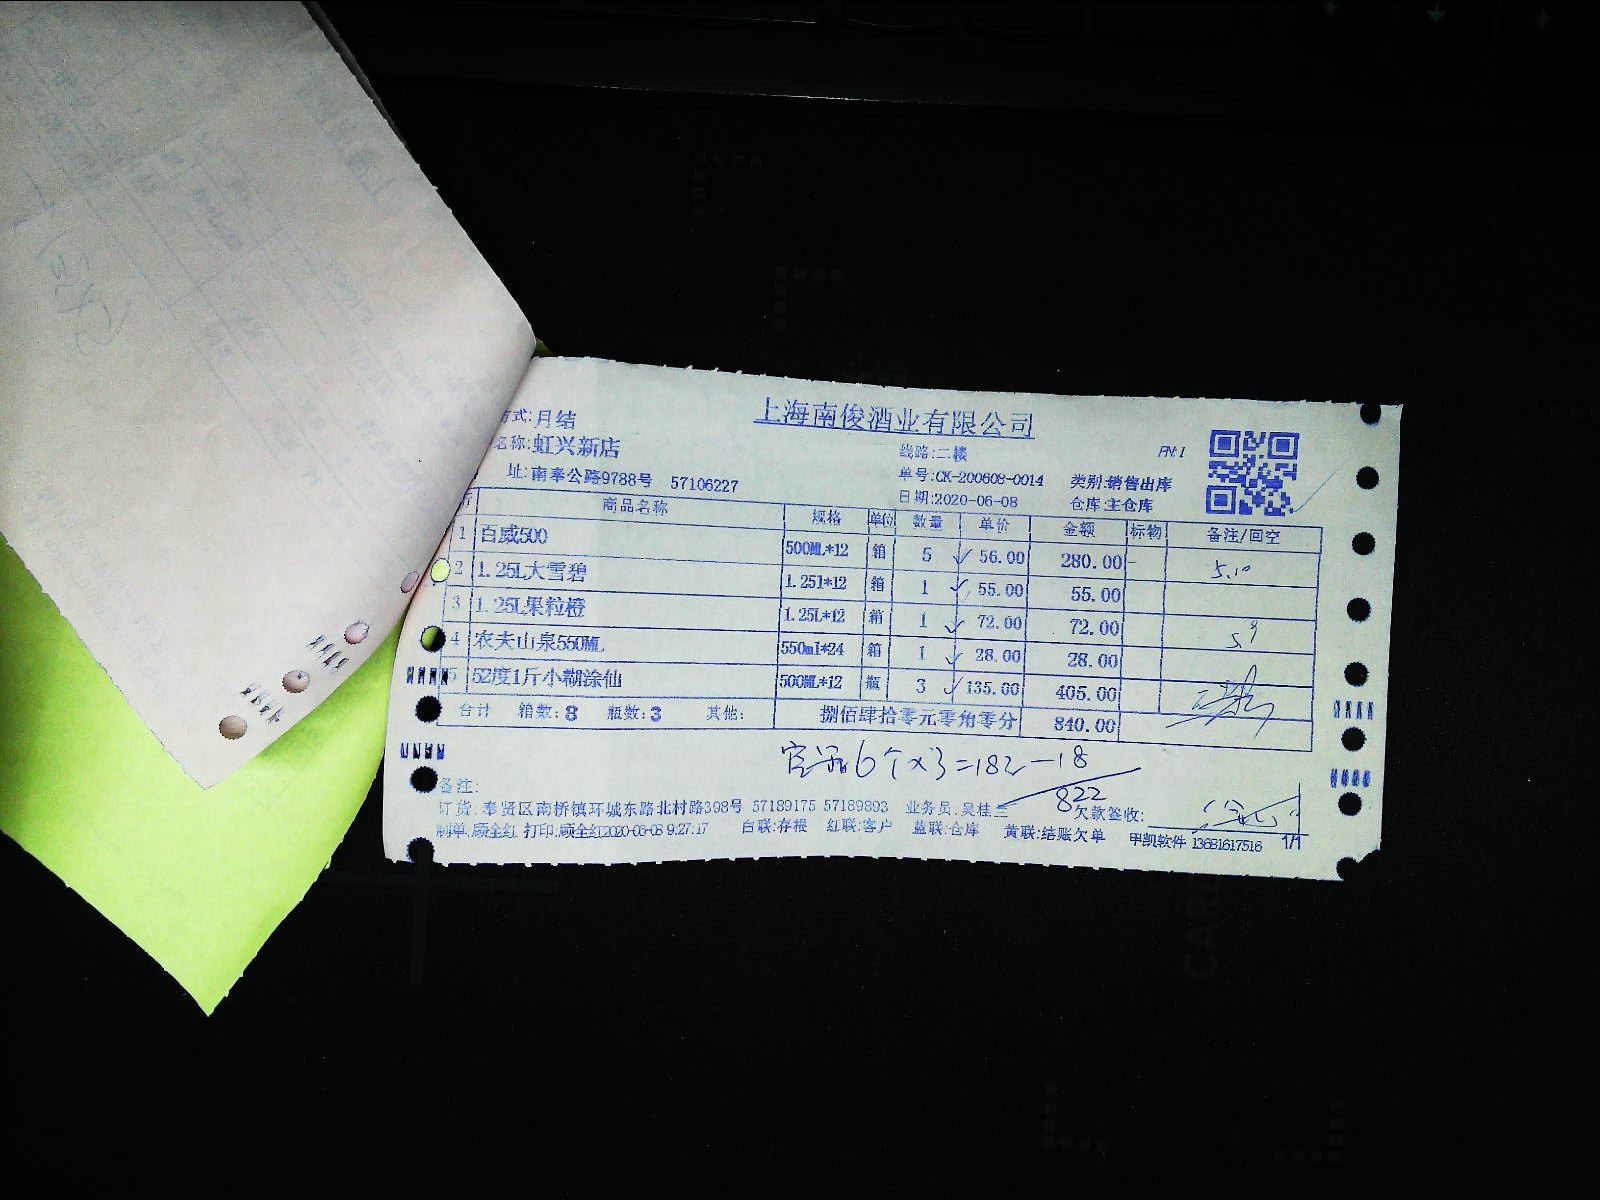 上海南俊酒业有限公司
式:月结
名称:虹兴新店
线路:二楼
址:南奉公路9788号 57106227
单号:CK-200608-0014 类别:销售出库
日期:2020-06-08 仓库:主仓库
商品名称 规格 单位 数量 单价 金额 标物 备注/回空
1 百威500 500ML*12 箱 5 56.00 280.00 5.10
2 1.25L大雪碧 1.25l*12 箱 1 55.00 55.00
3 1.25L果粒橙 1.25L*12 箱 1 72.00 72.00 5.9
4 农夫山泉550ML 550ml*24 箱 1 28.00 28.00
5 52度1斤小糊涂仙 500ML*12 瓶 3 135.00 405.00
合计 箱数:8 瓶数:3 其他: 捌佰肆拾零元零角零分 840.00
6个×3=18 -18
822
备注:
订货:奉贤区南桥镇环城东路北村路398号 57189175 57189803 业务员:吴桂兰 欠款签收:
制单:顾全红 打印:顾全红2020-06-08 9:27:17 白联:存根 红联:客户 蓝联:仓库 黄联:结账欠单 甲凯软件 13681617516 1/1